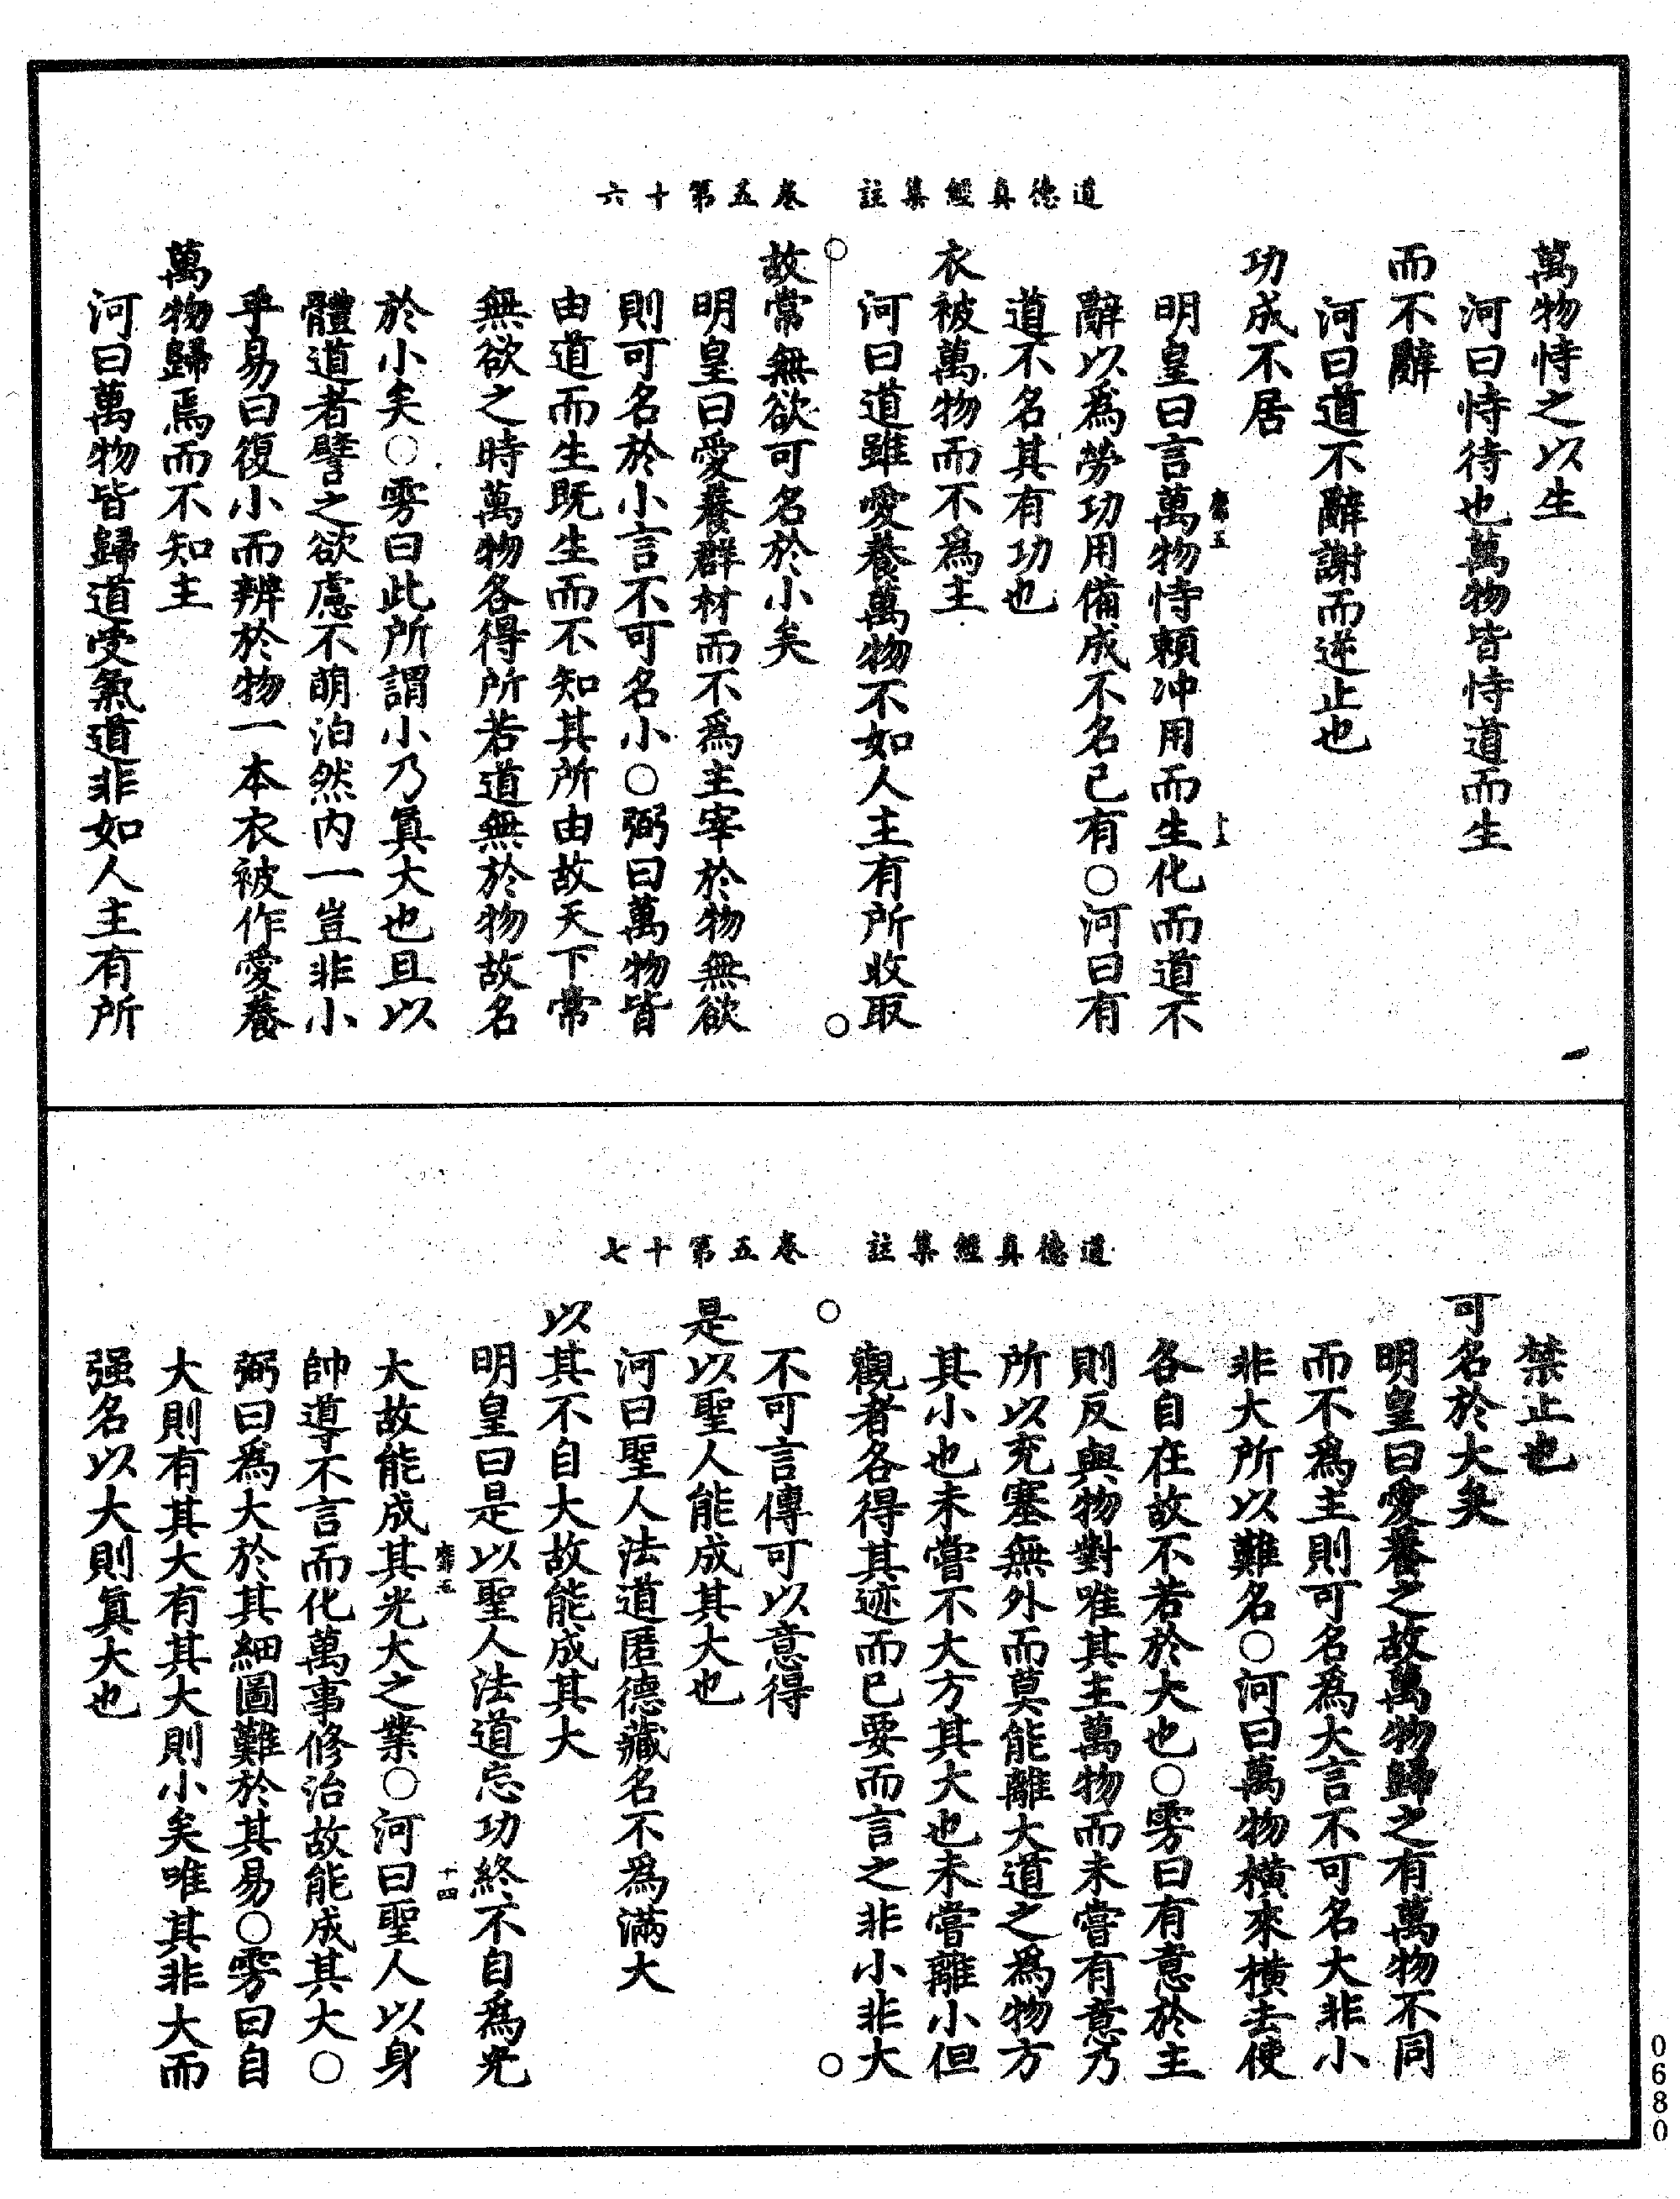 道德真經集註　卷五第十六
萬物恃之以生
河曰恃待也萬物皆恃道而生
而不辭
河曰道不辭謝而逆止也
功成不居
明皇曰言萬物恃賴冲用而生化而道不
辭以爲勞功用備成不名已有○河曰有
道不名其有功也
衣被萬物而不爲主
河曰道雖愛養萬物不如人主有所收取
故常無欲可名於小矣
明皇曰愛養群材而不爲主宰於物無欲
則可名於小言不可名小○弼曰萬物皆
由道而生既生而不知其所由故天下常
無欲之時萬物各得所若道無於物故名
於小矣○雱曰此所謂小乃真大也且以
體道者譬之欲慮不萌泊然内一豈非小
乎易曰復小而辨於物一本衣被作愛養
萬物歸焉而不知主
河曰萬物皆歸道受氣道非如人主有所
道德真經集註　卷五第十七
禁止也
可名於大矣
明皇曰愛養之故萬物歸之有萬物不同
而不爲主則可名爲大言不可名大非小
非大所以難名○河曰萬物橫來橫去使
各自在故不若於大也○雱曰有意於主
則反與物對唯其主萬物而未嘗有意乃
所以充塞無外而莫能離大道之爲物方
其小也未嘗不大方其大也未嘗離小但
觀者各得其迹而已要而言之非小非大
不可言傳可以意得
是以聖人能成其大也
河曰聖人法道匿德藏名不爲滿大
以其不自大故能成其大
明皇曰是以聖人法道忘功終不自爲光
大故能成其光大之業○河曰聖人以身
十四
帥導不言而化萬事修治故能成其大○
弼曰爲大於其細圖難於其易○雱曰自
大則有其大有其大則小矣唯其非大而
强名以大則真大也
0680